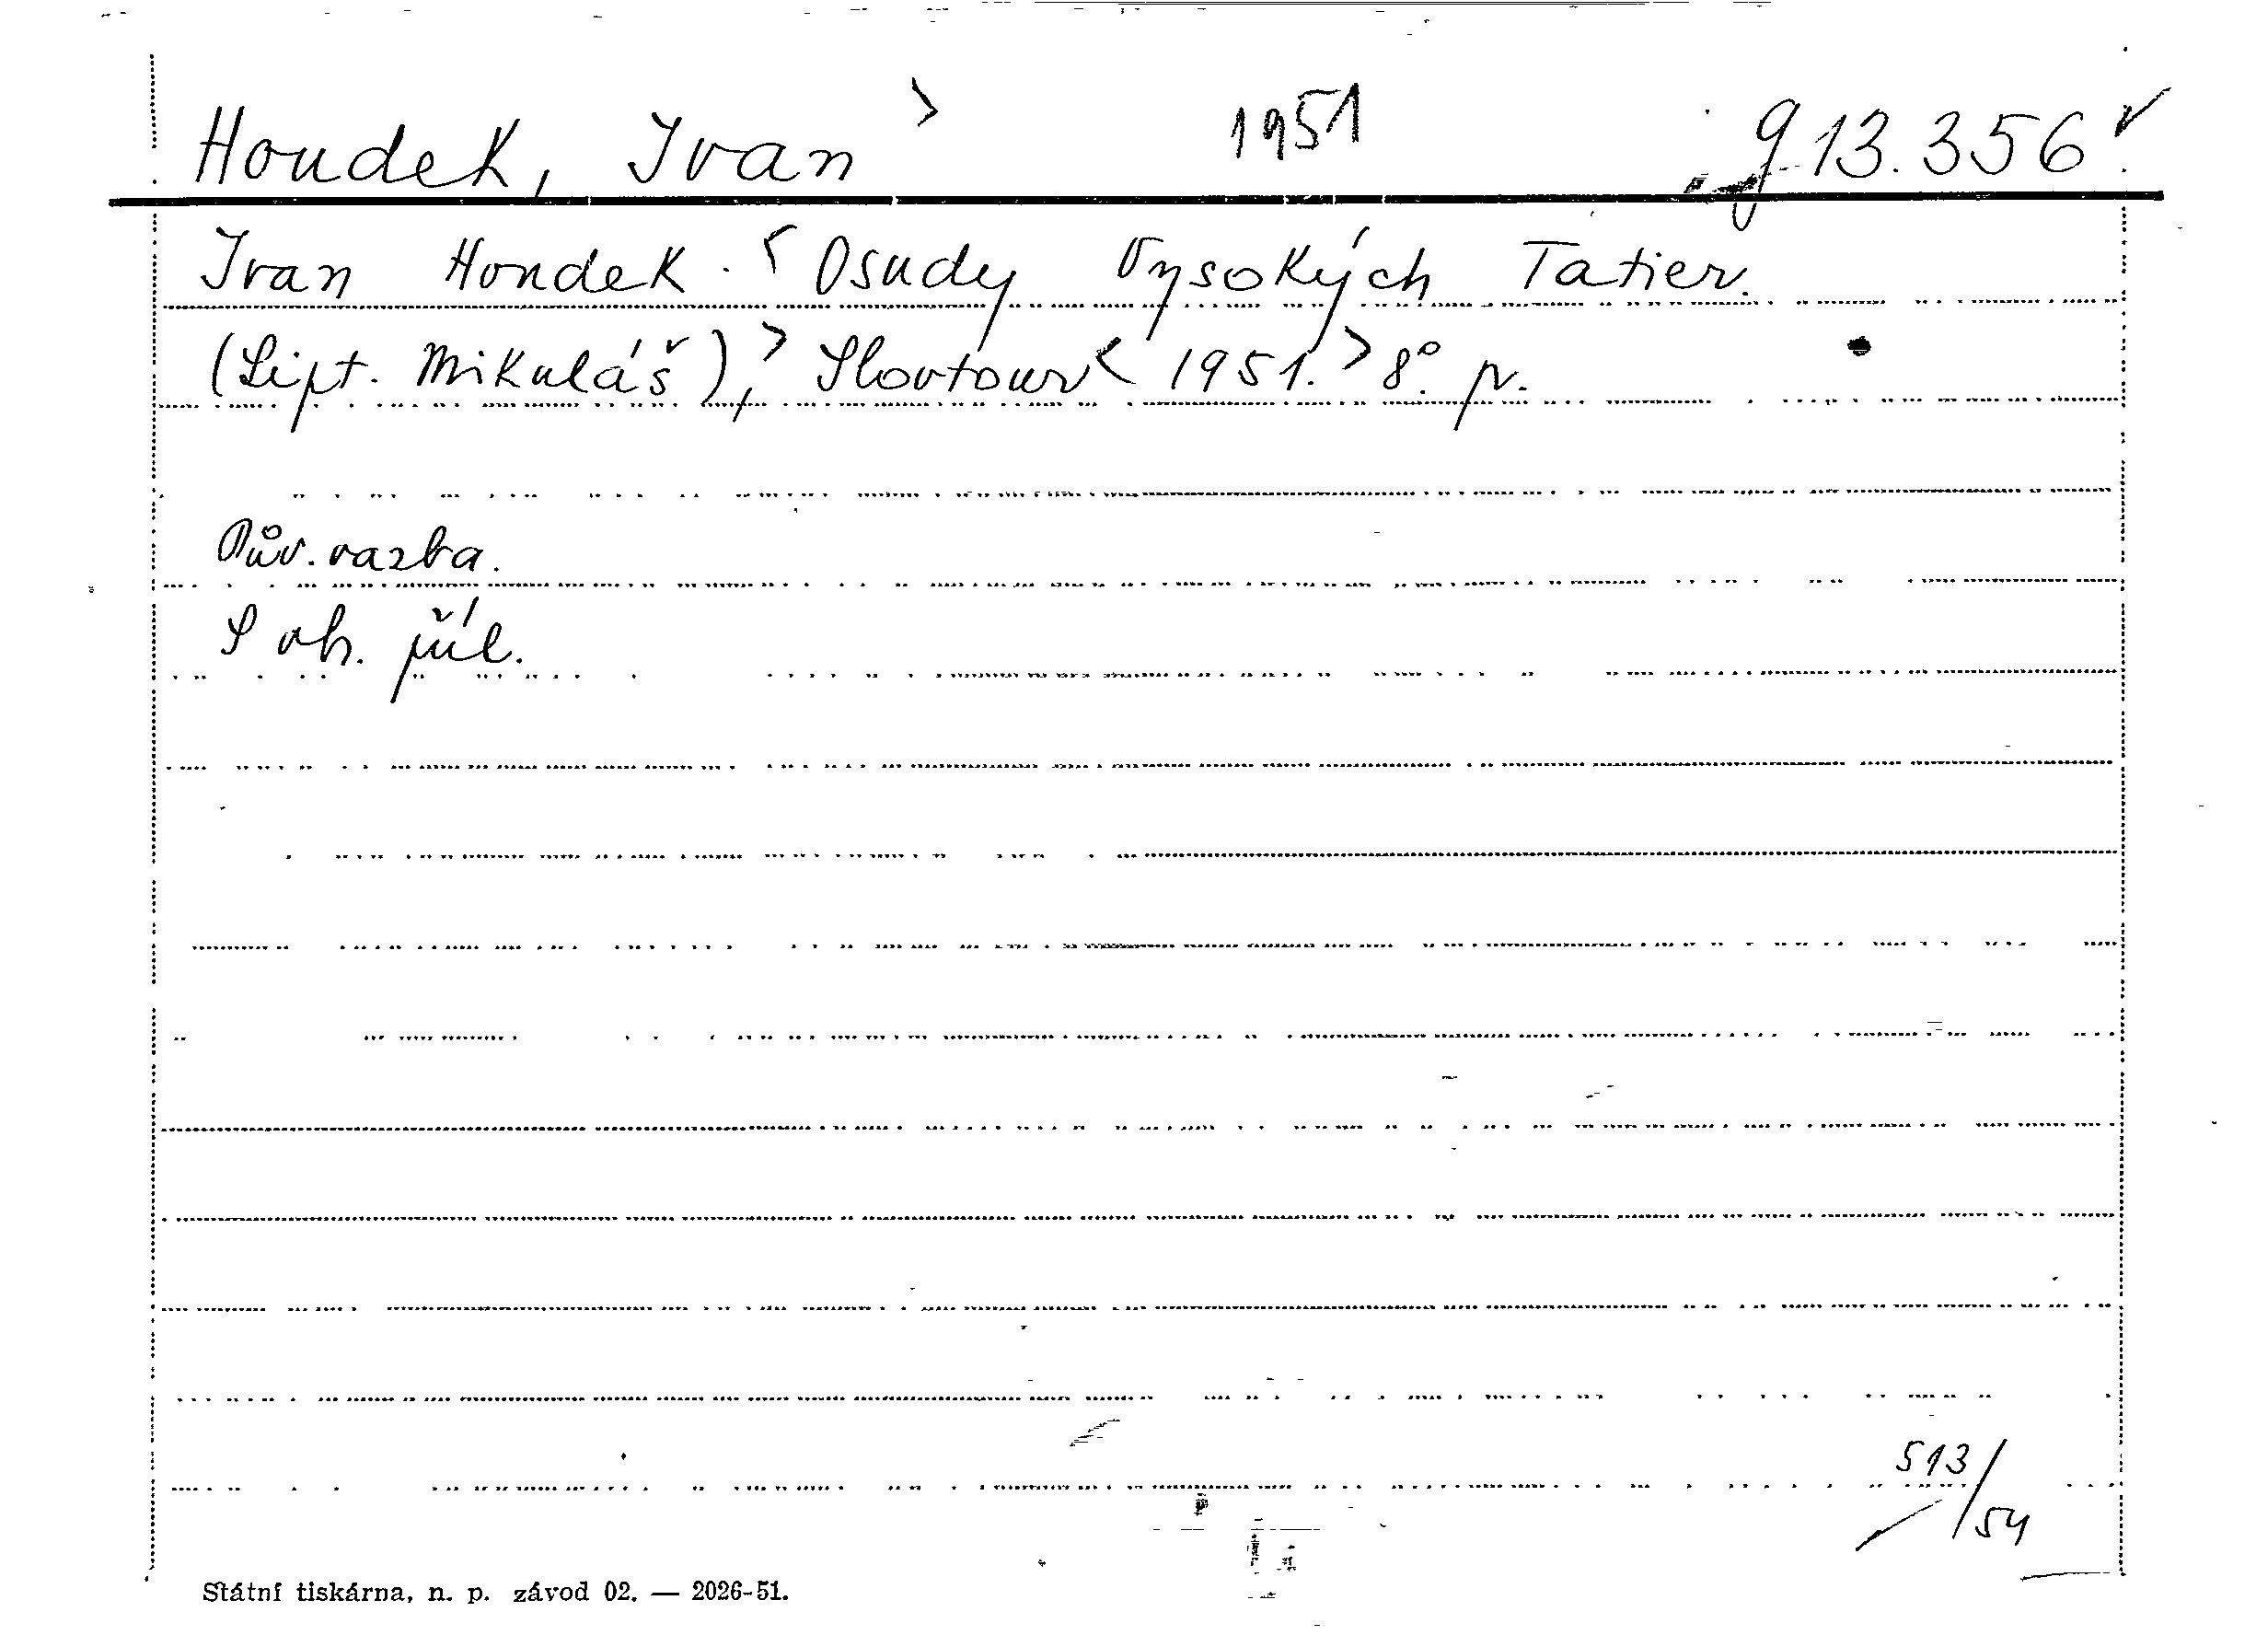 Houdek, Ivan > 1951 g 13.356 ✓
Ivan Houdek. < Osudy Vysokých Tatier.
(Lipt. Mikuláš), > Slovtour < 1951. > 8°. r.
Pův. vazba.
S ob. příl.
513/54
Státní tiskárna, n. p. závod 02. — 2026-51.